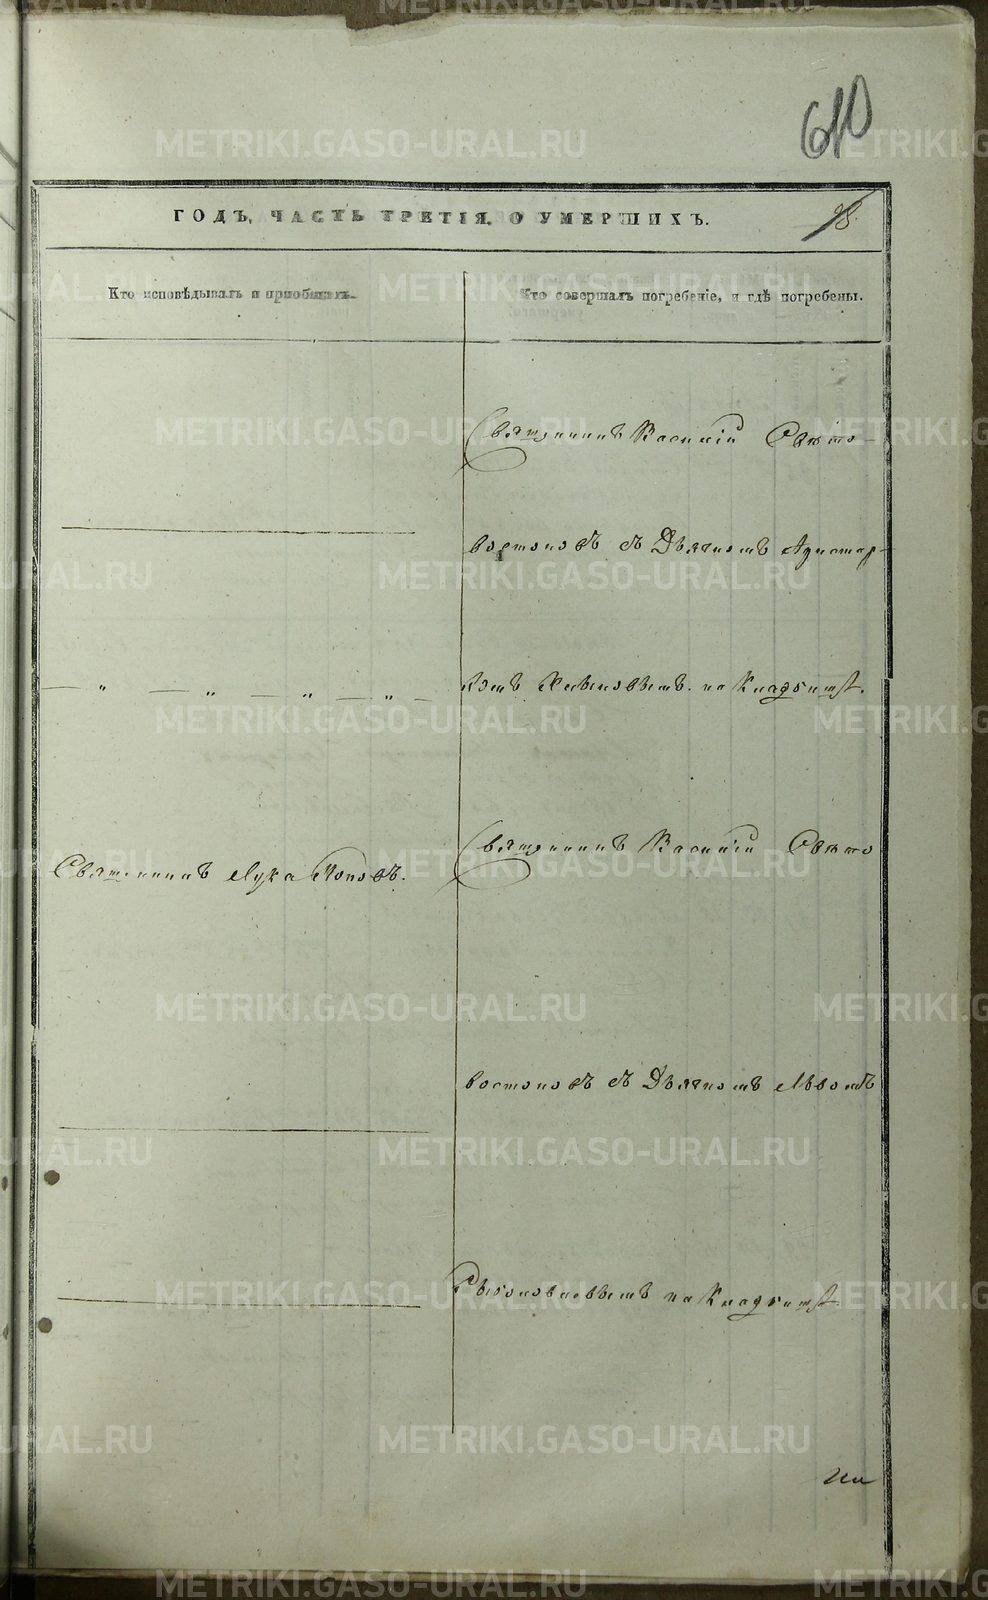 610
ГОДЪ, ЧАСТЬ ТРЕТІЯ, О УМЕРШИХЪ.
98.
Кто исповѣдывалъ и пріобщалъ.
Кто совершалъ погребеніе, и гдѣ погребены.
Священникъ Василій Свѣто-
востоковъ съ Дьячкомъ Аристар-
хомъ на Кладбищѣ.
Священникъ Лука Поповъ.
Священникъ Василій Свѣто
востоковъ съ Дьячкомъ Львомъ
на Кладбищѣ
METRIKI.GASO-URAL.RU